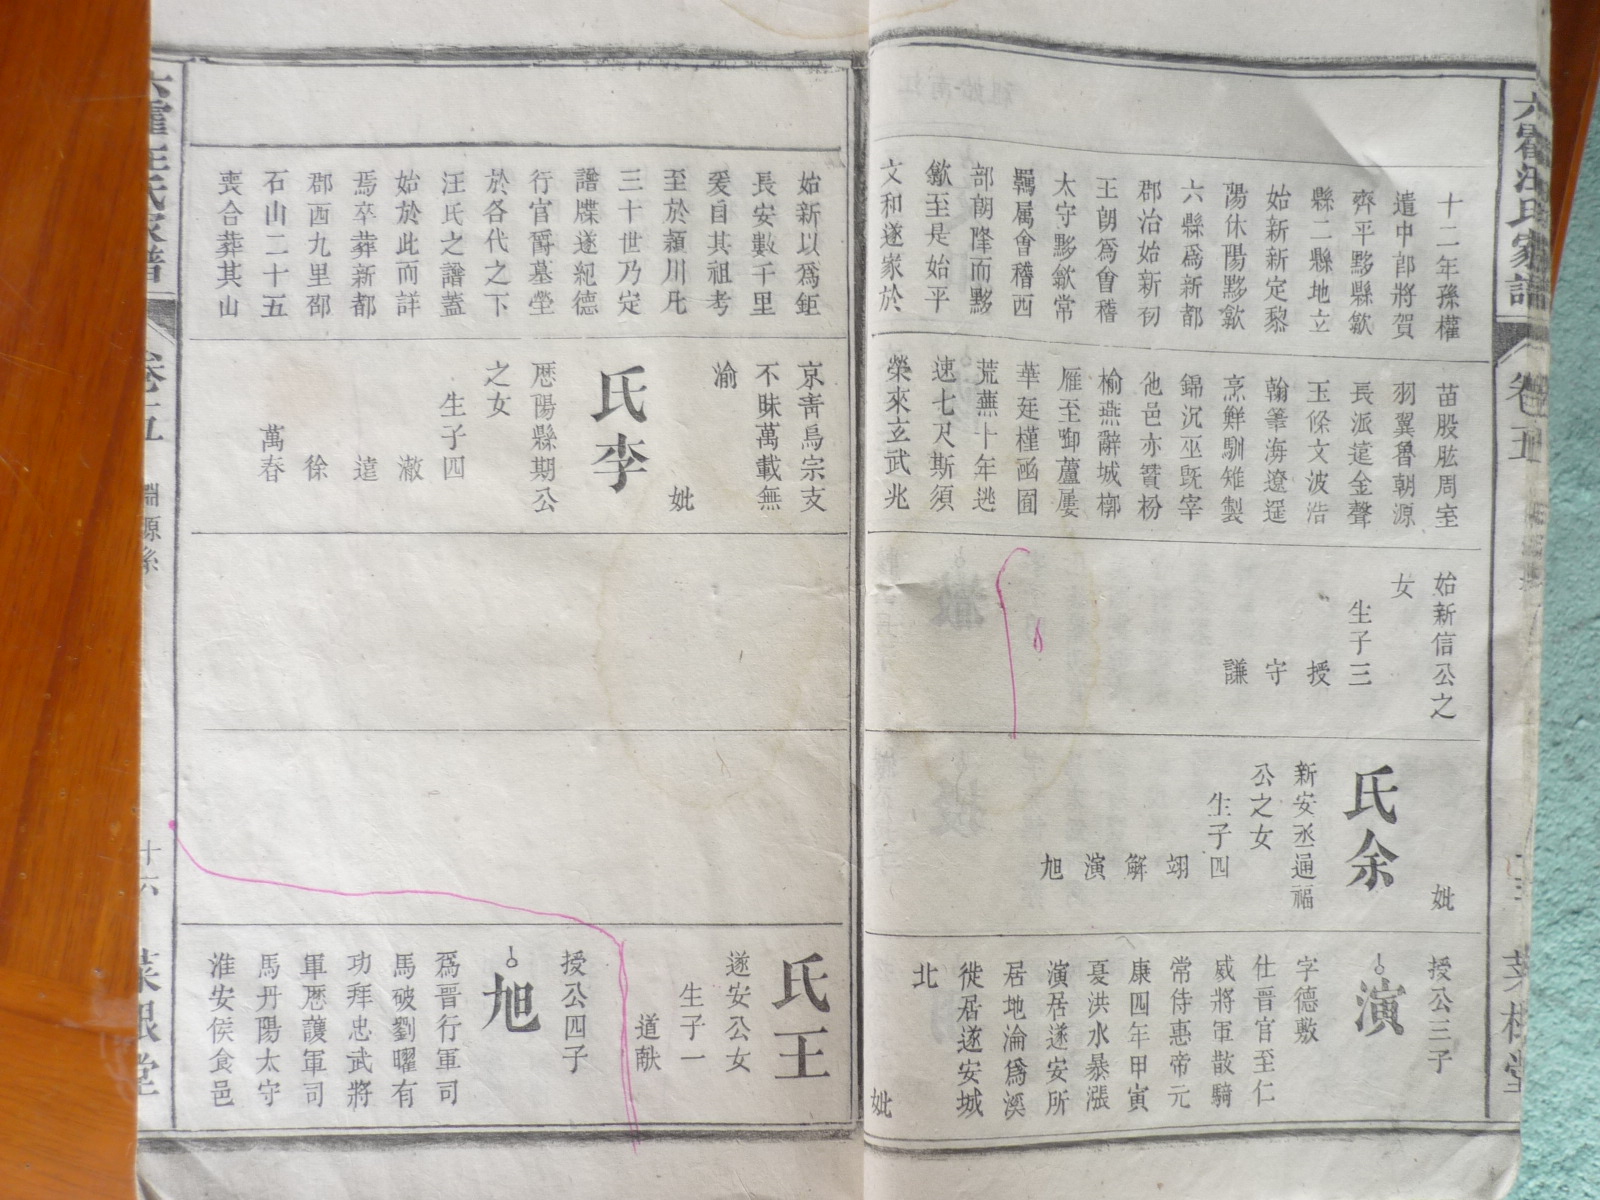 十二年孫權
遣中郎將賀
齊平黟縣歙
縣二縣地立
始新新定黎
陽休陽黟歙
六縣爲新都
郡治始新初
王朗爲會稽
太守黟歙常
羈屬會稽西
部朗隆而黟
歙至是始平
文和遂家於
苗股肱周室
羽翼魯朝源
長派遠金聲
玉條文波浩
翰筆海遼遥
烹鮮馴雉製
錦沉巫既宰
他邑亦贊枌
榆燕辭城槨
雁至啣蘆屢
華廷槿凾囿
荒蕪十年逃
速七尺斯須
榮來玄武兆
始新信公之
女
生子三
授
守
謙
妣
氏余
新安丞通福
公之女
生子四
翊
解
演
旭
授公三子
演
字德敷
仕晉官至仁
威將軍散騎
常侍惠帝元
康四年甲寅
憂洪水暴漲
演居遂安所
居地淪爲溪
徙居遂安城
北
妣
始新以爲鉅
長安數千里
爰自其祖考
至於潁川凡
三十世乃定
譜牒遂紀德
行官爵墓塋
於各代之下
汪氏之譜蓋
始於此而詳
焉卒葬新都
郡西九里邵
石山二十五
喪合葬其山
京靑烏宗支
不昧萬載無
渝
妣
氏李
厯陽縣期公
之女
生子四
澈
逵
徐
萬春
氏王
遂安公女
生子一
道献
授公四子
旭
爲晉行軍司
馬破劉曜有
功拜忠武將
軍厯護軍司
馬丹陽太守
淮安侯食邑
汪氏家譜
卷十五
淵源系
十六
菜根堂